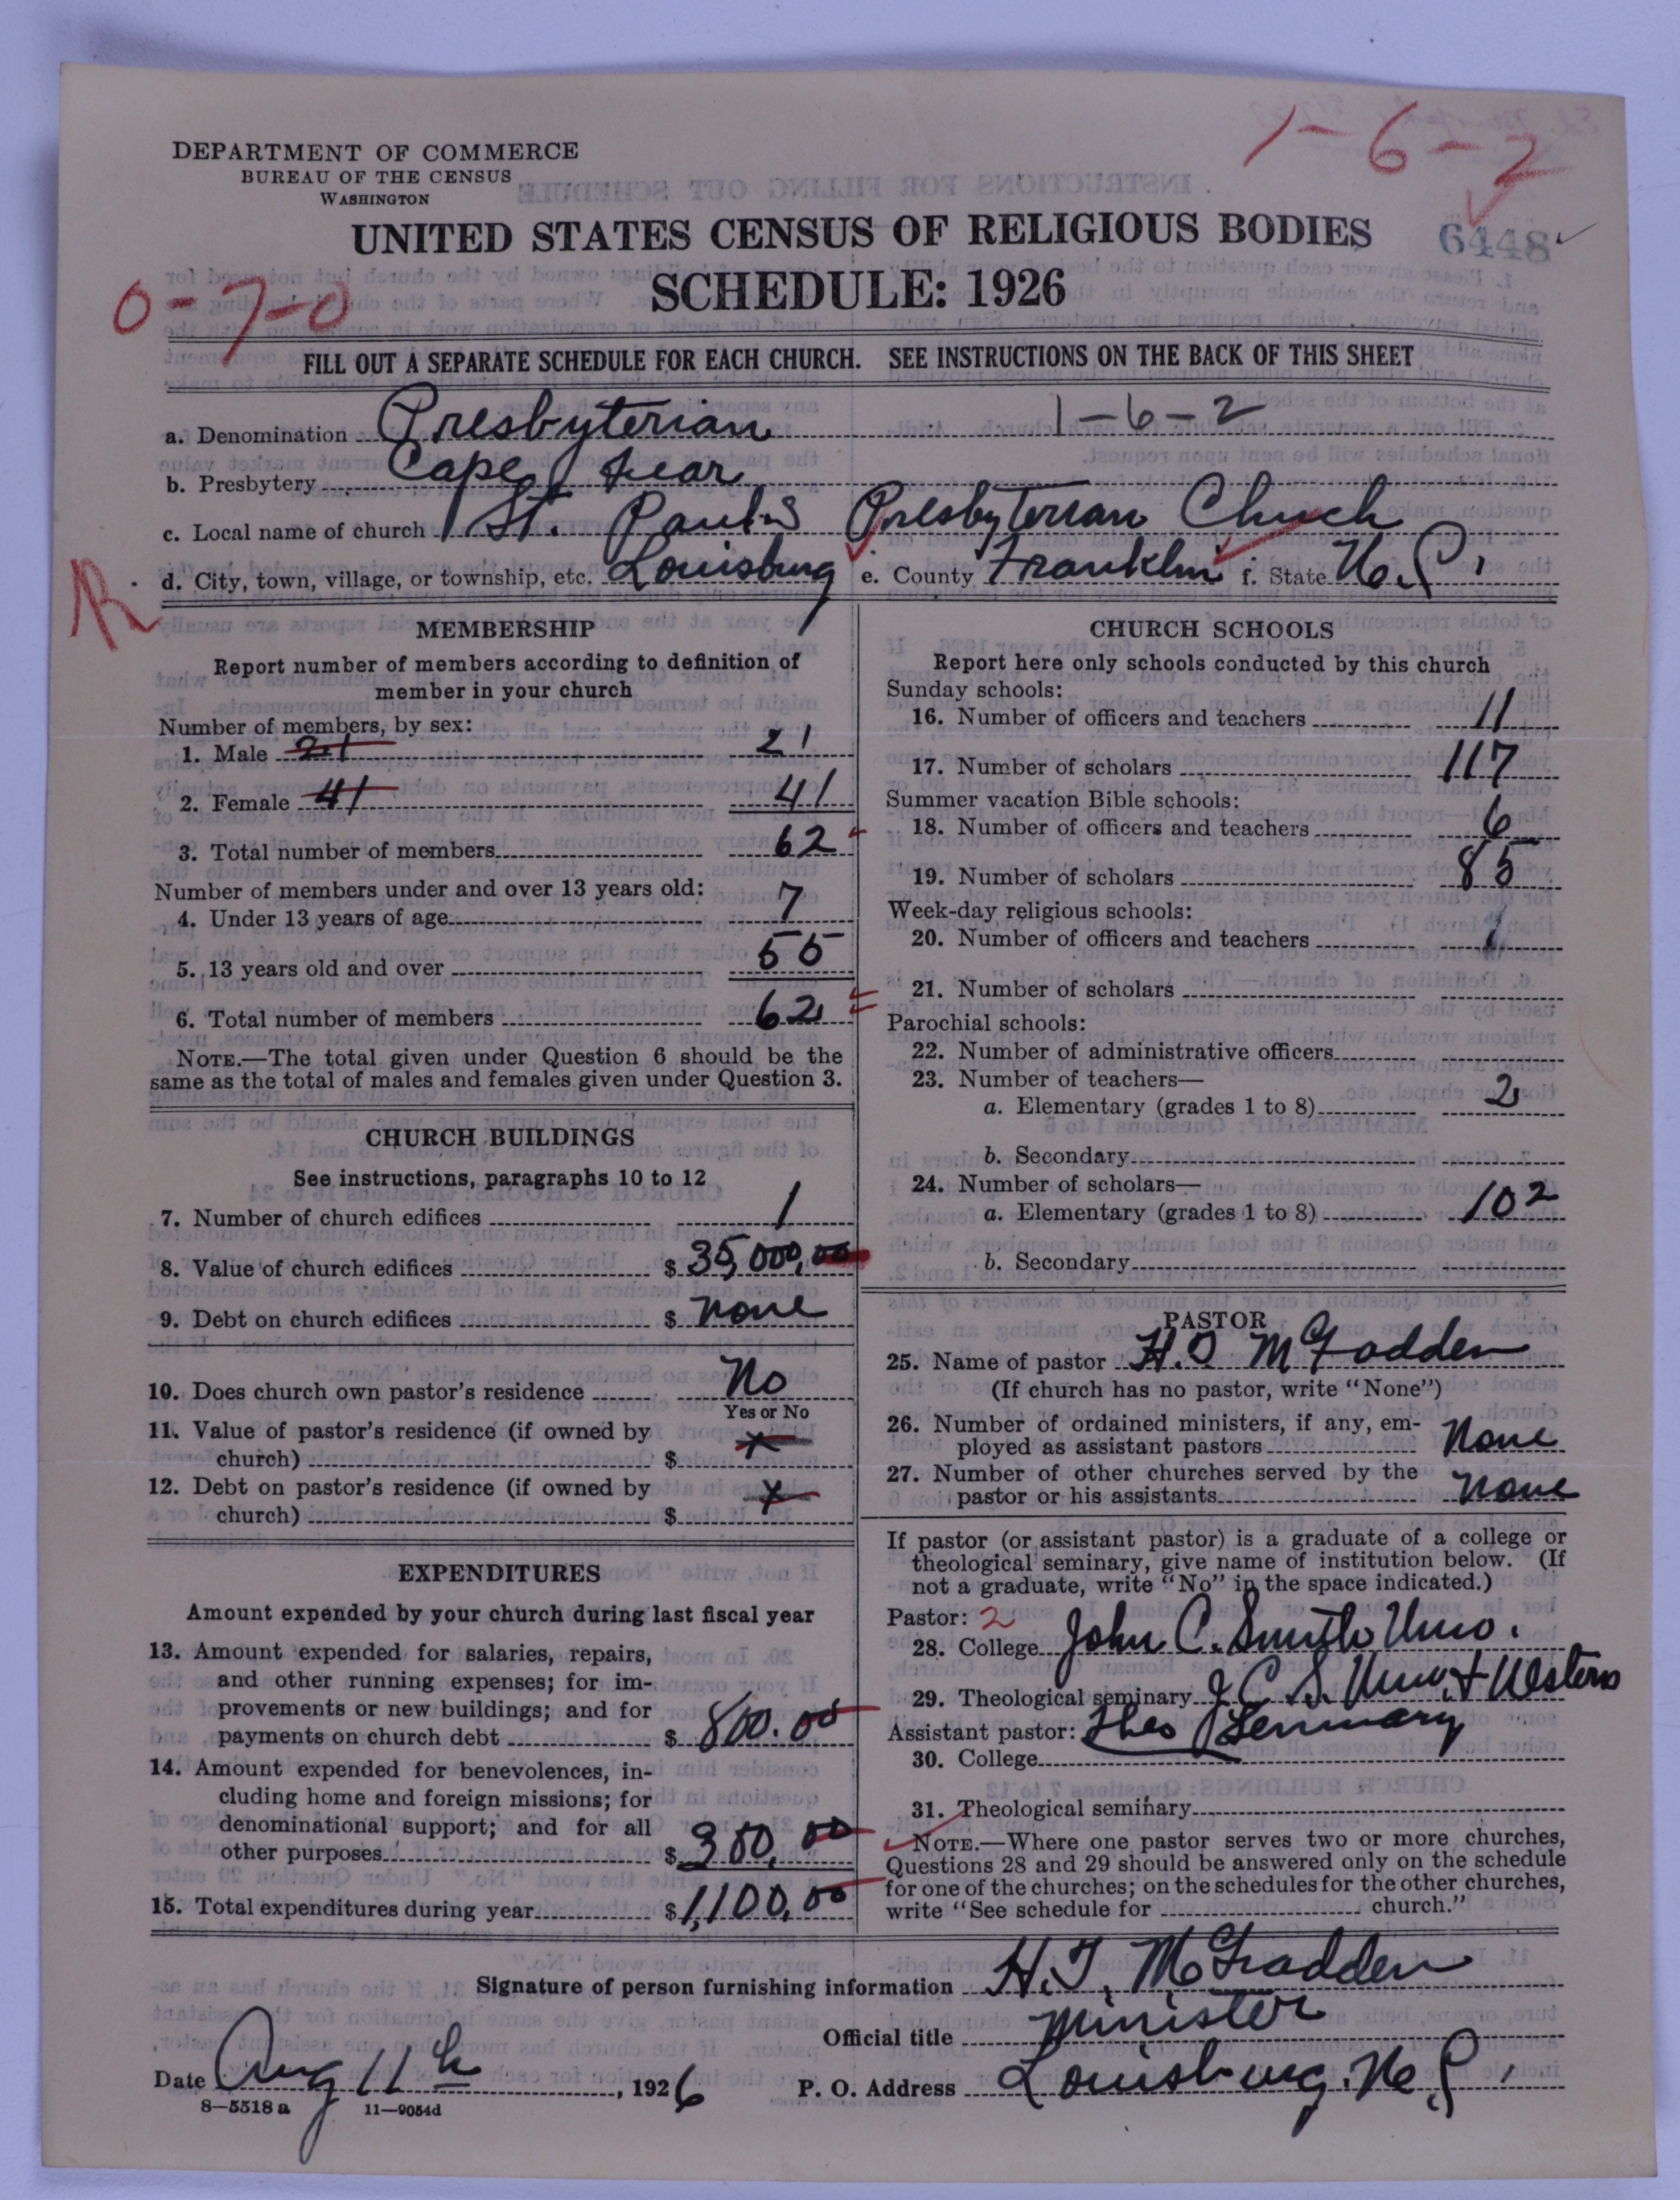 1-6-2
DEPARTMENT OF COMMERCE
BUREAU OF THE CENSUS
WASHINGTON
UNITED STATES CENSUS OF RELIGIOUS BODIES
6448
SCHEDULE: 1926
0-7-0
FILL OUT A SEPARATE SCHEDULE FOR EACH CHURCH. SEE INSTRUCTIONS ON THE BACK OF THIS SHEET
a. Denomination Presbyterian 1-6-2
b. Presbytery Cape Fear
c. Local name of church St. Paul's Presbyterian Church
d. City, town, village, or township, etc. Louisburg e. County Franklin f. State N.C.
MEMBERSHIP
Report number of members according to definition of
member in your church
Number of members, by sex:
1. Male 21 21
2. Female 41 41
3. Total number of members 62
Number of members under and over 13 years old:
4. Under 13 years of age 7
5. 13 years old and over 55
6. Total number of members 62
NOTE.—The total given under Question 6 should be the
same as the total of males and females given under Question 3.
CHURCH BUILDINGS
See instructions, paragraphs 10 to 12
7. Number of church edifices 1
8. Value of church edifices $ 35,000,00
9. Debt on church edifices $ none
10. Does church own pastor's residence No
Yes or No
11. Value of pastor's residence (if owned by
church) $ x
12. Debt on pastor's residence (if owned by
church) $ x
EXPENDITURES
Amount expended by your church during last fiscal year
13. Amount expended for salaries, repairs,
and other running expenses; for im-
provements or new buildings; and for
payments on church debt $ 800.00
14. Amount expended for benevolences, in-
cluding home and foreign missions; for
denominational support; and for all
other purposes $ 300,00
15. Total expenditures during year $ 1,100,00
CHURCH SCHOOLS
Report here only schools conducted by this church
Sunday schools:
16. Number of officers and teachers 11
17. Number of scholars 117
Summer vacation Bible schools:
18. Number of officers and teachers 6
19. Number of scholars 85
Week-day religious schools:
20. Number of officers and teachers
21. Number of scholars
Parochial schools:
22. Number of administrative officers
23. Number of teachers—
a. Elementary (grades 1 to 8) 2
b. Secondary
24. Number of scholars—
a. Elementary (grades 1 to 8) 102
b. Secondary
PASTOR
25. Name of pastor H. McFadden
(If church has no pastor, write "None")
26. Number of ordained ministers, if any, em-
ployed as assistant pastors None
27. Number of other churches served by the
pastor or his assistants None
If pastor (or assistant pastor) is a graduate of a college or
theological seminary, give name of institution below. (If
not a graduate, write "No" in the space indicated.)
Pastor: 2
28. College John C. Smith Uni.
29. Theological seminary J. C. S. Uni. + Western
Assistant pastor: Theo Seminary
30. College
31. Theological seminary
NOTE.—Where one pastor serves two or more churches,
Questions 28 and 29 should be answered only on the schedule
for one of the churches; on the schedules for the other churches,
write "See schedule for church."
Signature of person furnishing information H. T. McFadden
Official title Minister
Date Aug 11th, 1926 P. O. Address Louisburg, N.C.
8—5518a 11—9054d